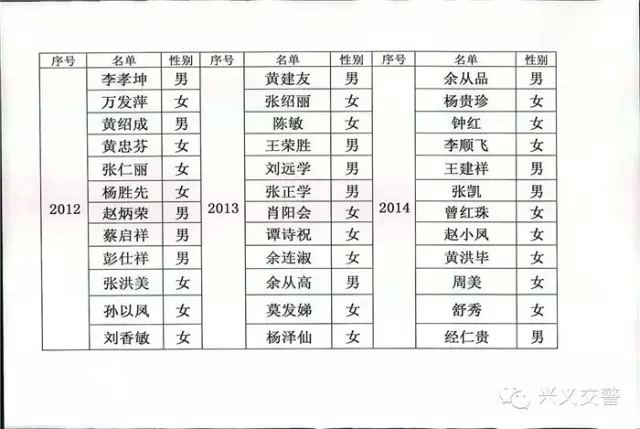 序号 名单 性别 序号 名单 性别 序号 名单 性别
2012 李孝坤 男 2013 黄建友 男 2014 余从品 男
万发萍 女 张绍丽 女 杨贵珍 女
黄绍成 男 陈敏 女 钟红 女
黄忠芬 女 王荣胜 男 李顺飞 女
张仁丽 女 刘远学 男 王建祥 男
杨胜先 女 张正学 男 张凯 男
赵炳荣 男 肖阳会 女 曾红珠 女
蔡启祥 男 谭诗祝 女 赵小凤 女
彭仕祥 男 余连淑 女 黄洪毕 女
张洪美 女 余从高 男 周美 女
孙以凤 女 莫发娣 女 舒秀 女
刘香敏 女 杨泽仙 女 经仁贵 男
兴义交警